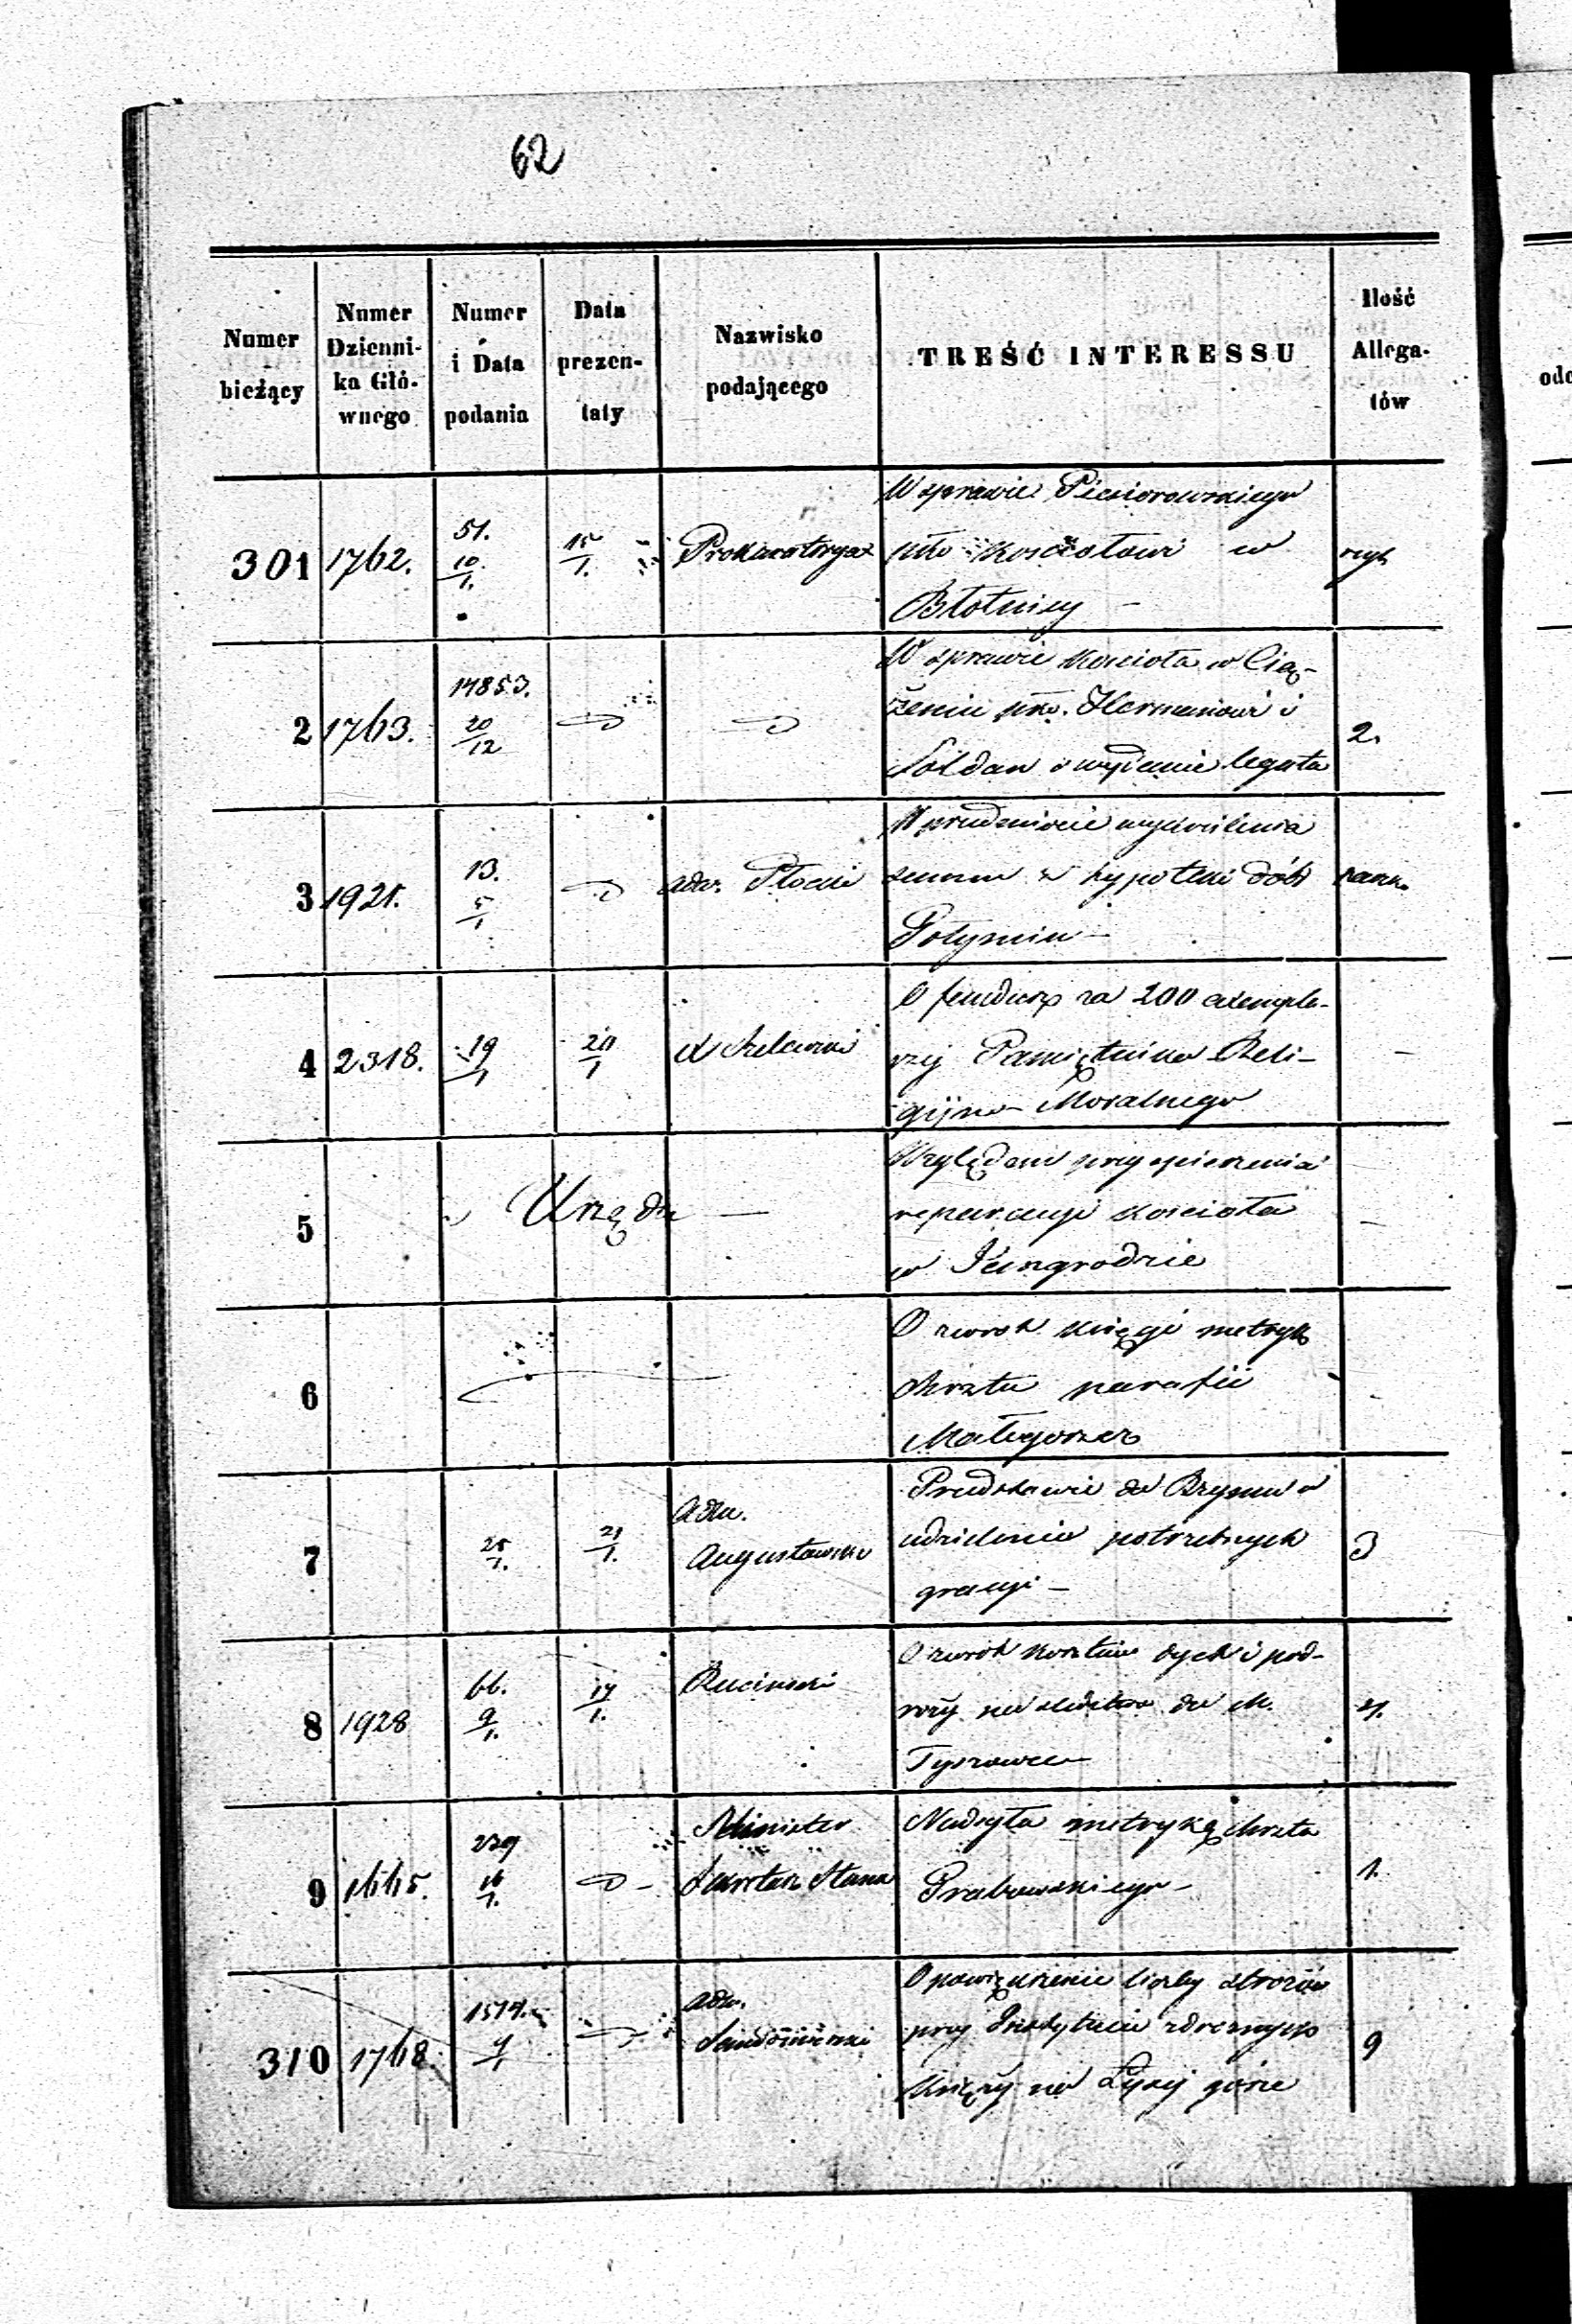 62
Numer bieżący
Numer Dzienni- ka Głó- wnego
Numer i Data podania
Data prezen- taty
Nazwisko podającego
TREŚĆ INTERESSU
Ilość Allega- tów
301 1762. 51. 10/1. 15/1. Prokuratorya
W sprawie
pko kościołowi w
Błotnicy –
2 1763. 14853. 20/12 2.
W sprawie kościoła w Cią-
żeniu pko. Hermanowi i
Soldan o wydanie legata
3 1921. 13. 5/1 adm. Płocki
W przedmiocie wykreślenia
summ z hypoteki dóbr
4 2318. 19/1 20/1
O fundusz za 200 exempla-
rzy Pamiętnika Reli-
gijno-Moralnego
5 z Urzędu –
Względem przyspieszenia
reparacyi kościoła
w
6
O zwrot księgi metryk
chrztu parafii
Małogoszcz
7 25/1. 21/1. Adm. Augustowski 3
Przedstawie do Rzymu o
udzielenie potrzebnych
gracyi –
8 1928 66. 9/1. 17/1. Ruciński 4.
O zwrot kosztów dyet i pod-
róży na śledztwo do M.
Tyszowce
9 1665. 239 16/1. Minister Sekretarz Stanu 1.
Nadsyła metrykę chrztu
Grabowskiego –
310 1768 1574. 9/1 adm. Sandomierski 9
O powiększenie liczby stróżów
przy Instytucie zdrożnych
Księży na Łysej górze
odd